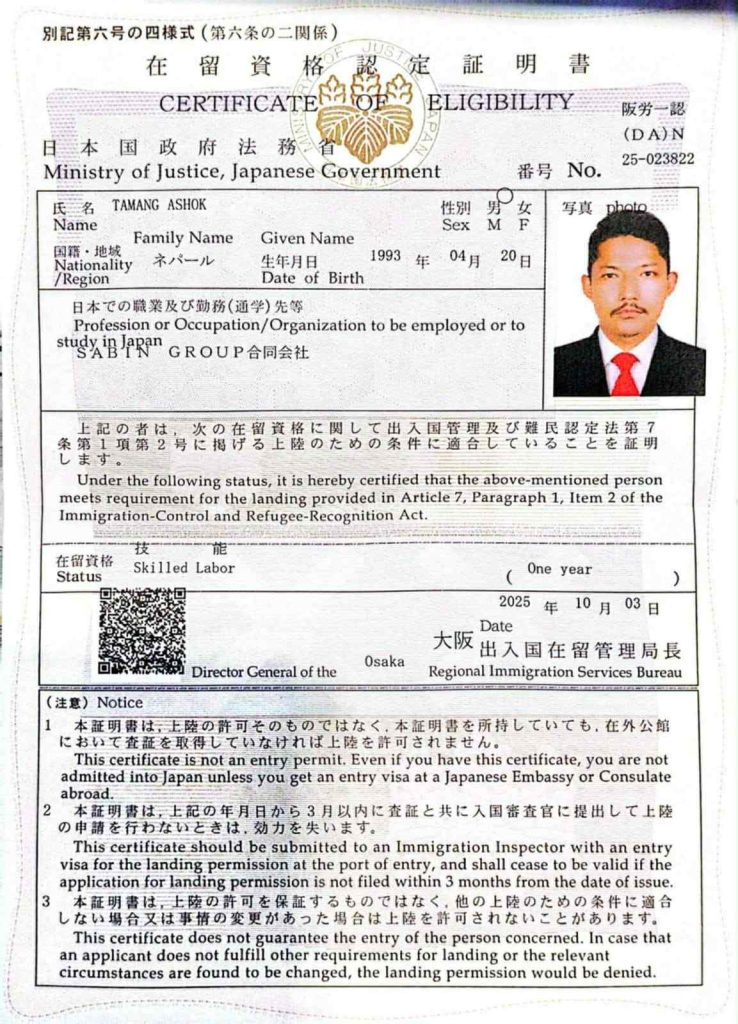 別記第六号の四様式(第六条の二関係)
在留資格認定証明書
CERTIFICATE OF ELIGIBILITY
阪労一認
(DA)N
日本国政府法務省
25-023822
Ministry of Justice, Japanese Government 番号 No.
氏名 TAMANG ASHOK 性別 男 女 写真 photo
Name Sex M F
Family Name Given Name
国籍・地域 ネパール 生年月日 1993 年 04 月 20 日
Nationality Date of Birth
/Region
日本での職業及び勤務(通学)先等
Profession or Occupation/Organization to be employed or to
study in Japan
SABIN GROUP合同会社
上記の者は,次の在留資格に関して出入国管理及び難民認定法第7
条第1項第2号に掲げる上陸のための条件に適合していることを証明
します。
Under the following status, it is hereby certified that the above-mentioned person
meets requirement for the landing provided in Article 7, Paragraph 1, Item 2 of the
Immigration-Control and Refugee-Recognition Act.
在留資格 技能
Status Skilled Labor ( One year )
2025 年 10 月 03 日
Date
大阪 出入国在留管理局長
Director General of the Osaka Regional Immigration Services Bureau
(注意) Notice
1 本証明書は,上陸の許可そのものではなく,本証明書を所持していても,在外公館
において査証を取得していなければ上陸を許可されません。
This certificate is not an entry permit. Even if you have this certificate, you are not
admitted into Japan unless you get an entry visa at a Japanese Embassy or Consulate
abroad.
2 本証明書は,上記の年月日から3月以内に査証と共に入国審査官に提出して上陸
の申請を行わないときは,効力を失います。
This certificate should be submitted to an Immigration Inspector with an entry
visa for the landing permission at the port of entry, and shall cease to be valid if the
application for landing permission is not filed within 3 months from the date of issue.
3 本証明書は,上陸の許可を保証するものではなく,他の上陸のための条件に適合
しない場合又は事情の変更があった場合は上陸を許可されないことがあります。
This certificate does not guarantee the entry of the person concerned. In case that
an applicant does not fulfill other requirements for landing or the relevant
circumstances are found to be changed, the landing permission would be denied.